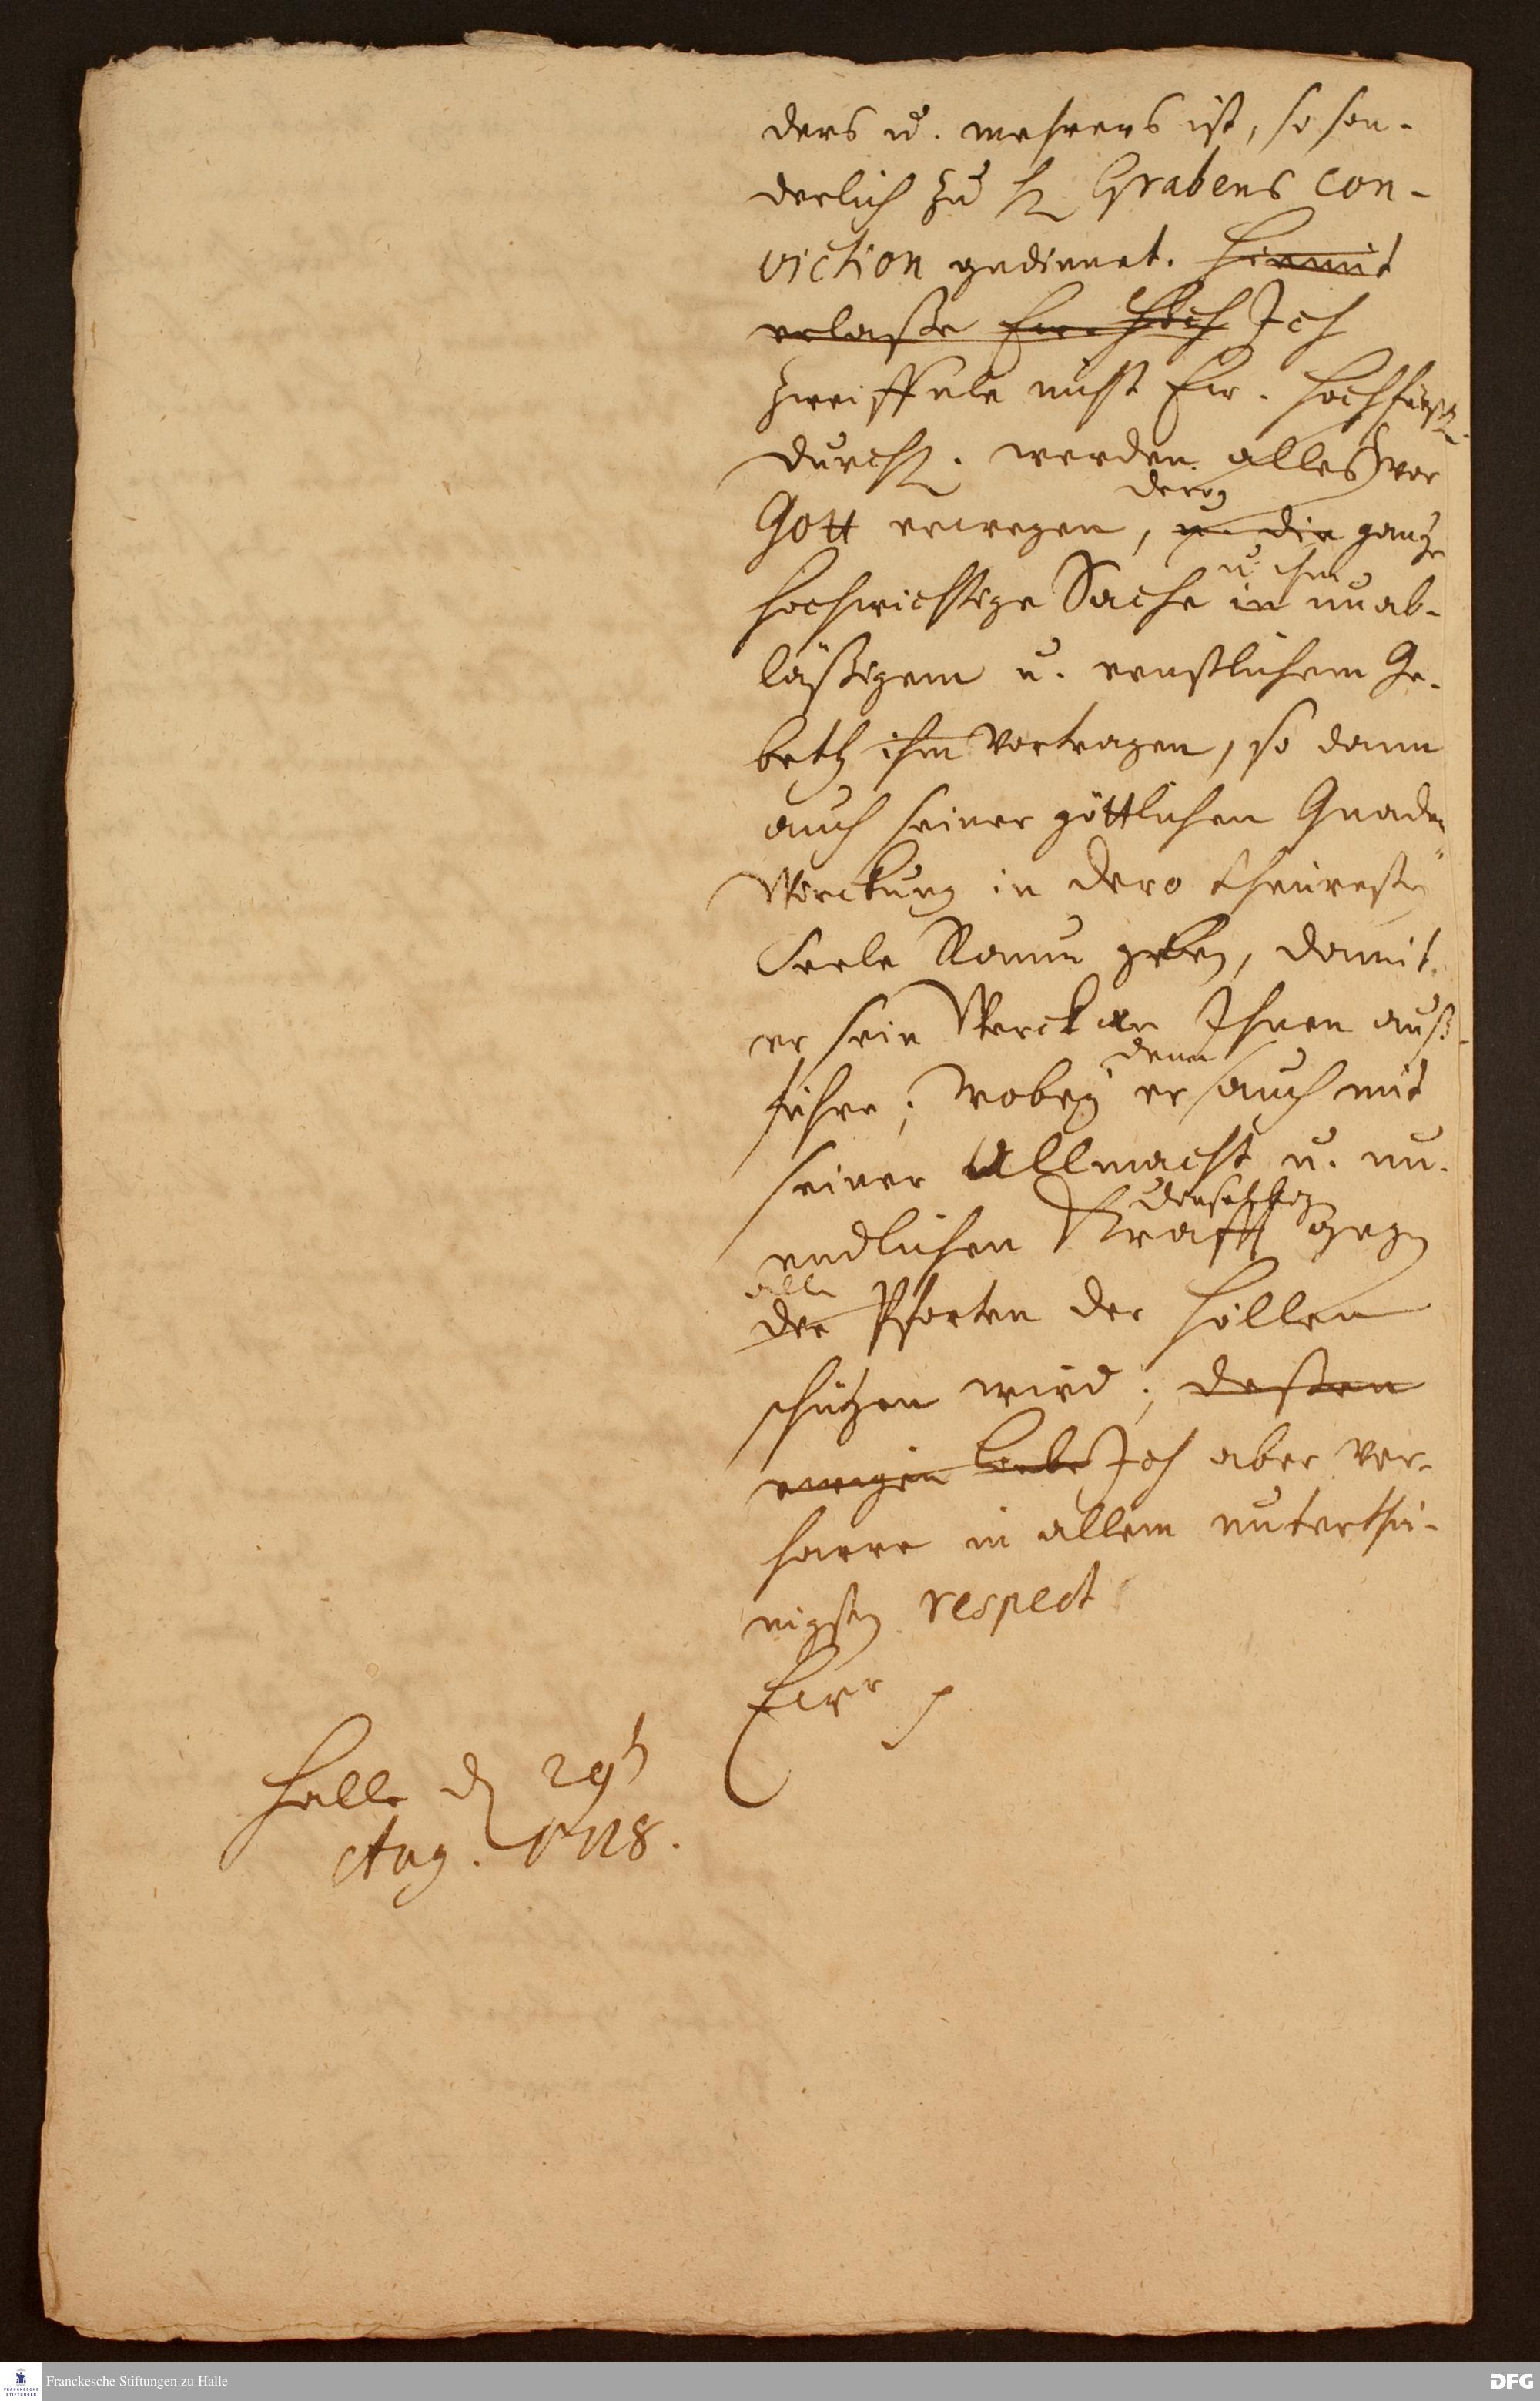 ders u. mehrers ist, so son-
derlich zu H Grabens con-
viction gedienet. Hiemit
erlaße Ew. Hoch Ich
zweiffele nicht Ew. Hochfürstl.
Durchl. werden alles vor
dero
Gott erwegen, u. die gantze
u. ihm
hochwichtige Sache in unab-
läßigem u. ernstlichem Ge-
beth ihm vortragen, so dann
auch seiner göttlichen Gnaden
Wirckung in dero theureste
Seele Raum geben, damit
er sein Werck an Ihnen auß-
denn
führe; wobey er auch mit
seiner Allmacht u. un-
dieselbige
endlichen Krafft gegen
alle
der Pforten der Höllen
schützen wird; deßen
ewigen Liebe Ich aber ver-
harre in allem unterthä-
nigsten respect
Ewr
Halle d 29
Aug. 1718.
Franckesche Stiftungen zu Halle
DFG